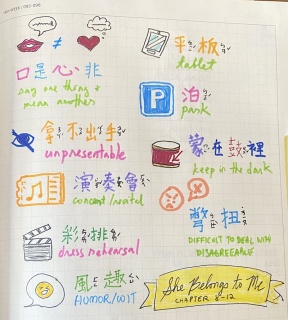 ≠
口是心非
say one thing +
mean another
拿不出手
unpresentable
演奏會
concert/recital
彩排
dress rehearsal
風趣
HUMOR/WIT
平板
tablet
P
泊
park
蒙在鼓裡
keep in the dark
彆扭
DIFFICULT TO DEAL WITH
DISAGREEABLE
She Belongs to Me
CHAPTER 8-12